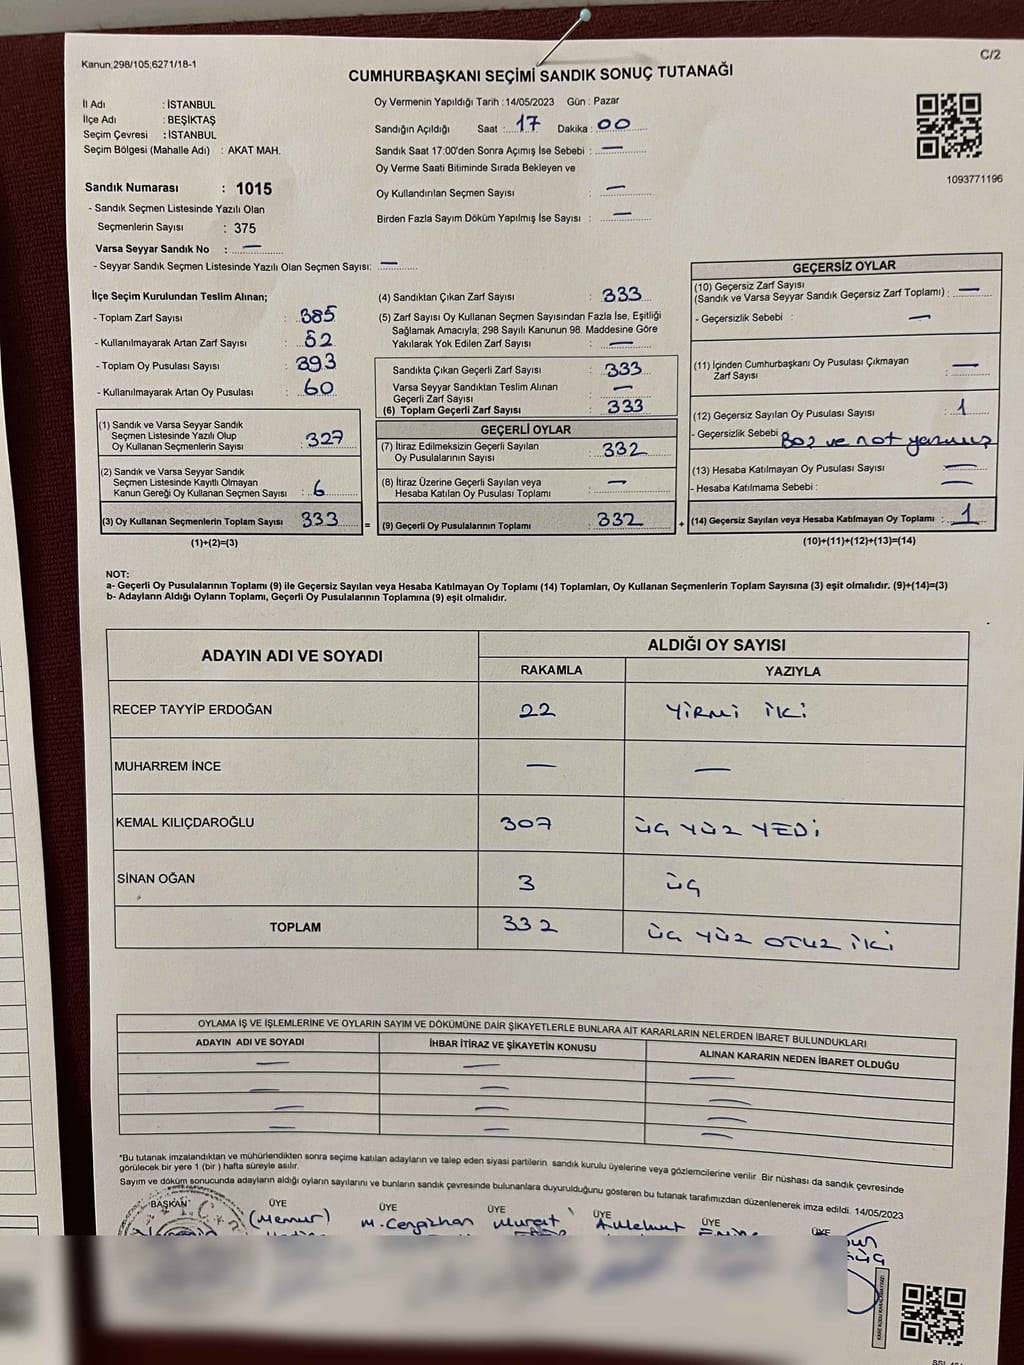 Kanun;298/105;6271/18-1
C/2
CUMHURBAŞKANI SEÇİMİ SANDIK SONUÇ TUTANAĞI
İl Adı : İSTANBUL
İlçe Adı : BEŞİKTAŞ
Seçim Çevresi : İSTANBUL
Seçim Bölgesi (Mahalle Adı) : AKAT MAH.
Oy Vermenin Yapıldığı Tarih :14/05/2023 Gün : Pazar
Sandığın Açıldığı Saat : 17 Dakika : 00
Sandık Saat 17:00'den Sonra Açımış İse Sebebi : —
Oy Verme Saati Bitiminde Sırada Bekleyen ve
Oy Kullandırılan Seçmen Sayısı : —
Birden Fazla Sayım Döküm Yapılmış İse Sayısı : —
1093771196
Sandık Numarası : 1015
- Sandık Seçmen Listesinde Yazılı Olan
Seçmenlerin Sayısı : 375
Varsa Seyyar Sandık No : —
- Seyyar Sandık Seçmen Listesinde Yazılı Olan Seçmen Sayısı: —
İlçe Seçim Kurulundan Teslim Alınan;
- Toplam Zarf Sayısı : 385
- Kullanılmayarak Artan Zarf Sayısı : 52
- Toplam Oy Pusulası Sayısı : 393
- Kullanılmayarak Artan Oy Pusulası : 60
(1) Sandık ve Varsa Seyyar Sandık
Seçmen Listesinde Yazılı Olup
Oy Kullanan Seçmenlerin Sayısı : 327
(2) Sandık ve Varsa Seyyar Sandık
Seçmen Listesinde Kayıtlı Olmayan
Kanun Gereği Oy Kullanan Seçmen Sayısı : 6
(3) Oy Kullanan Seçmenlerin Toplam Sayısı : 333
(1)+(2)=(3)
(4) Sandıktan Çıkan Zarf Sayısı : 333
(5) Zarf Sayısı Oy Kullanan Seçmen Sayısından Fazla İse, Eşitliği
Sağlamak Amacıyla; 298 Sayılı Kanunun 98. Maddesine Göre
Yakılarak Yok Edilen Zarf Sayısı : —
Sandıkta Çıkan Geçerli Zarf Sayısı : 333
Varsa Seyyar Sandıktan Teslim Alınan
Geçerli Zarf Sayısı : —
(6) Toplam Geçerli Zarf Sayısı : 333
GEÇERLİ OYLAR
(7) İtiraz Edilmeksizin Geçerli Sayılan
Oy Pusulalarının Sayısı : 332
(8) İtiraz Üzerine Geçerli Sayılan veya
Hesaba Katılan Oy Pusulası Toplamı : —
= (9) Geçerli Oy Pusulalarının Toplamı : 332
GEÇERSİZ OYLAR
(10) Geçersiz Zarf Sayısı
(Sandık ve Varsa Seyyar Sandık Geçersiz Zarf Toplamı) : —
- Geçersizlik Sebebi : —
(11) İçinden Cumhurbaşkanı Oy Pusulası Çıkmayan
Zarf Sayısı : —
(12) Geçersiz Sayılan Oy Pusulası Sayısı : 1
- Geçersizlik Sebebi : Boş ve not yazmış
(13) Hesaba Katılmayan Oy Pusulası Sayısı : —
- Hesaba Katılmama Sebebi : —
+ (14) Geçersiz Sayılan veya Hesaba Katılmayan Oy Toplamı : 1
(10)+(11)+(12)+(13)=(14)
NOT:
a- Geçerli Oy Pusulalarının Toplamı (9) ile Geçersiz Sayılan veya Hesaba Katılmayan Oy Toplamı (14) Toplamları, Oy Kullanan Seçmenlerin Toplam Sayısına (3) eşit olmalıdır. (9)+(14)=(3)
b- Adayların Aldığı Oyların Toplamı, Geçerli Oy Pusulalarının Toplamına (9) eşit olmalıdır.
ADAYIN ADI VE SOYADI ALDIĞI OY SAYISI
RAKAMLA YAZIYLA
RECEP TAYYİP ERDOĞAN 22 YİRMİ İKİ
MUHARREM İNCE — —
KEMAL KILIÇDAROĞLU 307 ÜÇ YÜZ YEDİ
SİNAN OĞAN 3 ÜÇ
TOPLAM 332 ÜÇ YÜZ OTUZ İKİ
OYLAMA İŞ VE İŞLEMLERİNE VE OYLARIN SAYIM VE DÖKÜMÜNE DAİR ŞİKAYETLERLE BUNLARA AİT KARARLARIN NELERDEN İBARET BULUNDUKLARI
ADAYIN ADI VE SOYADI İHBAR İTİRAZ VE ŞİKAYETİN KONUSU ALINAN KARARIN NEDEN İBARET OLDUĞU
— — —
— — —
— — —
— — —
*Bu tutanak imzalandıktan ve mühürlendikten sonra seçime katılan adayların ve talep eden siyasi partilerin sandık kurulu üyelerine veya gözlemcilerine verilir. Bir nüshası da sandık çevresinde
görülecek bir yere 1 (bir) hafta süreyle asılır.
Sayım ve döküm sonucunda adayların aldığı oyların sayılarını ve bunların sandık çevresinde bulunanlara duyurulduğunu gösteren bu tutanak tarafımızdan düzenlenerek imza edildi. 14/05/2023
BAŞKAN ÜYE ÜYE ÜYE ÜYE ÜYE ÜYE
(Memur) M. Cengizhan Murat A. Mehmet